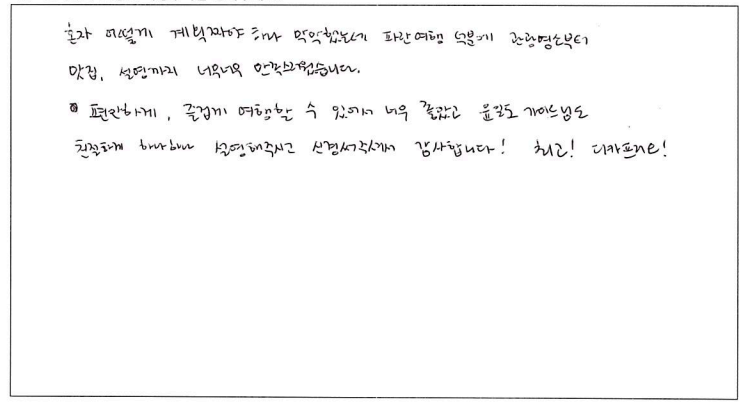 혼자 어떻게 계획짜야 하나 막막했는데 파란여행 덕분에 관광명소부터
맛집, 설명까지 너무너무 만족스러웠습니다.
편안하게, 즐겁게 여행할 수 있어서 너무 좋았고 윤일도 가이드님도
친절하게 하나하나 설명해주시고 신경써주셔서 감사합니다! 최고! 디카프리오!